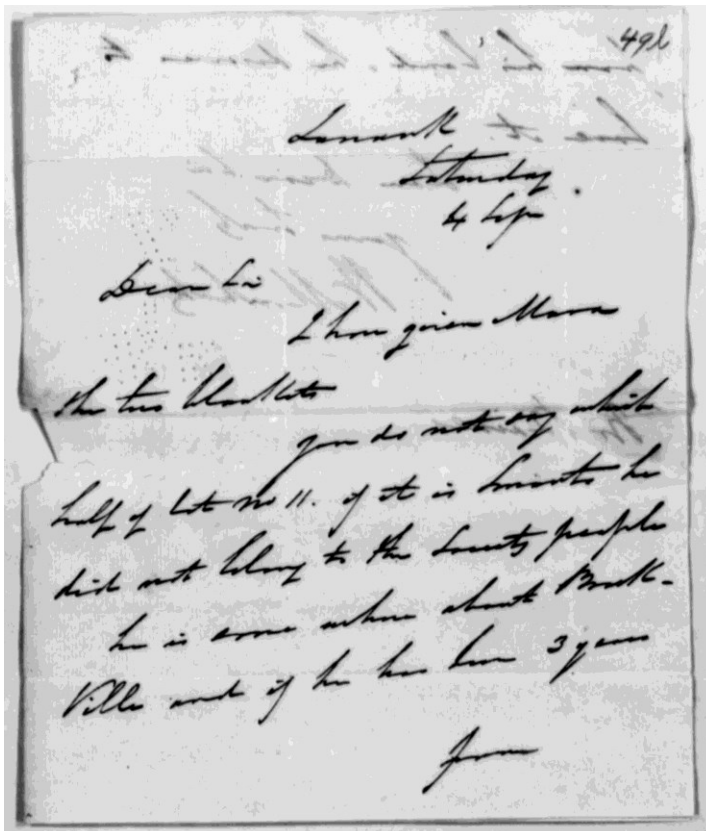 498
Lanark
Saturday
4 Sep
Dear Sir
I have given Mara
the two blankets
you do not say which
half of Lot No 11. if it is he
did not belong to the Society people
he is some where about Brock-
Ville and if he has been 3 years
from